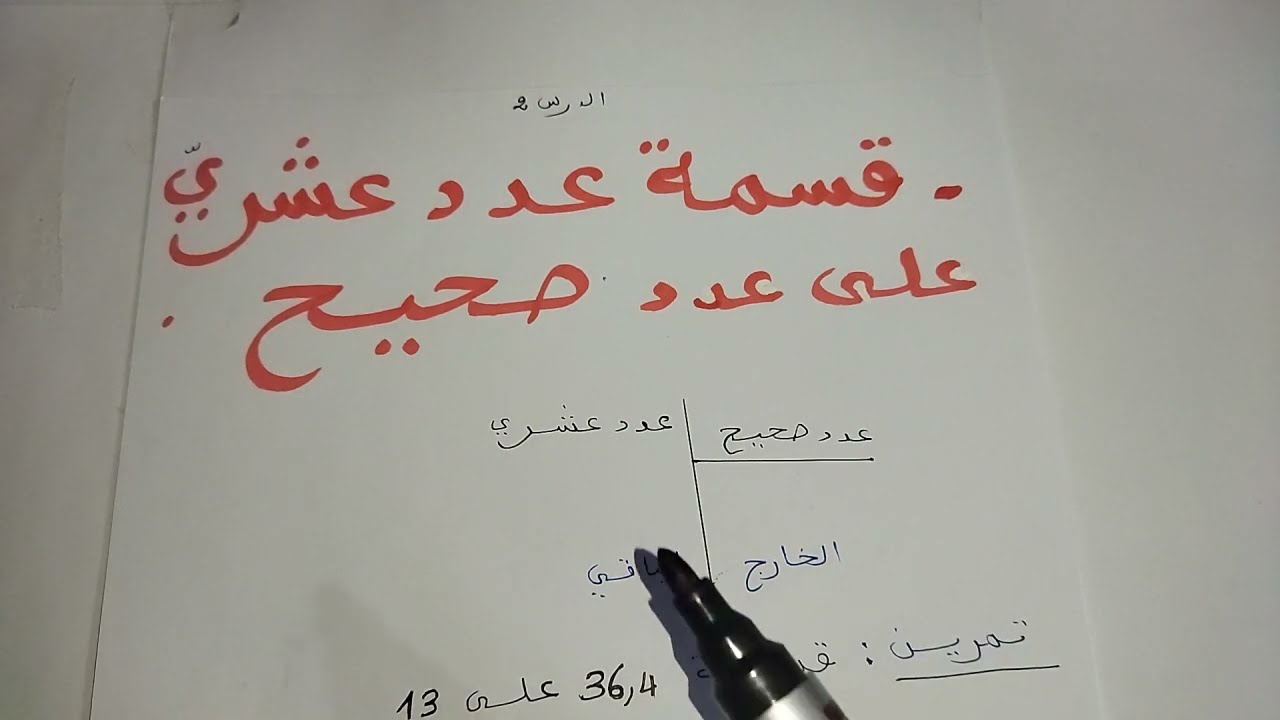 الدرس 2
- قسمة عدد عشريّ
على عدد صحيح .
عدد عشري
عدد صحيح
الخارج
تمرين :
36,4 على 13